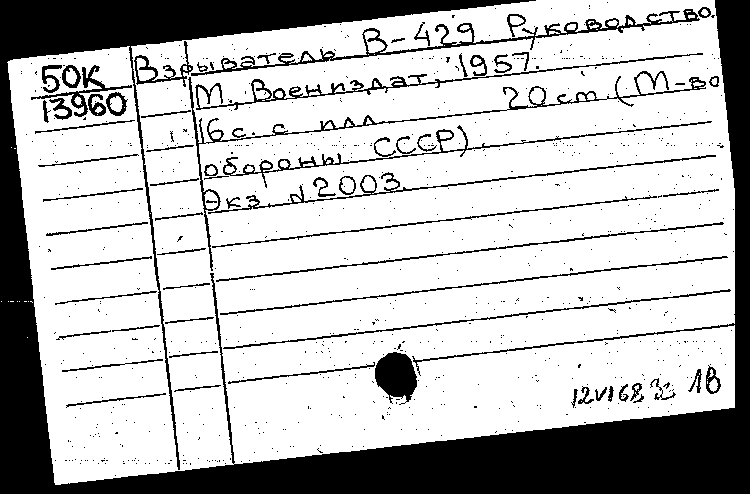 50К
13960
Взрыватель В-429 Руководство.
М., Воениздат, 1957.
16 с. с илл. 20 cm. (М-во
обороны СССР).
Экз. №2003.
12 VI 68 18